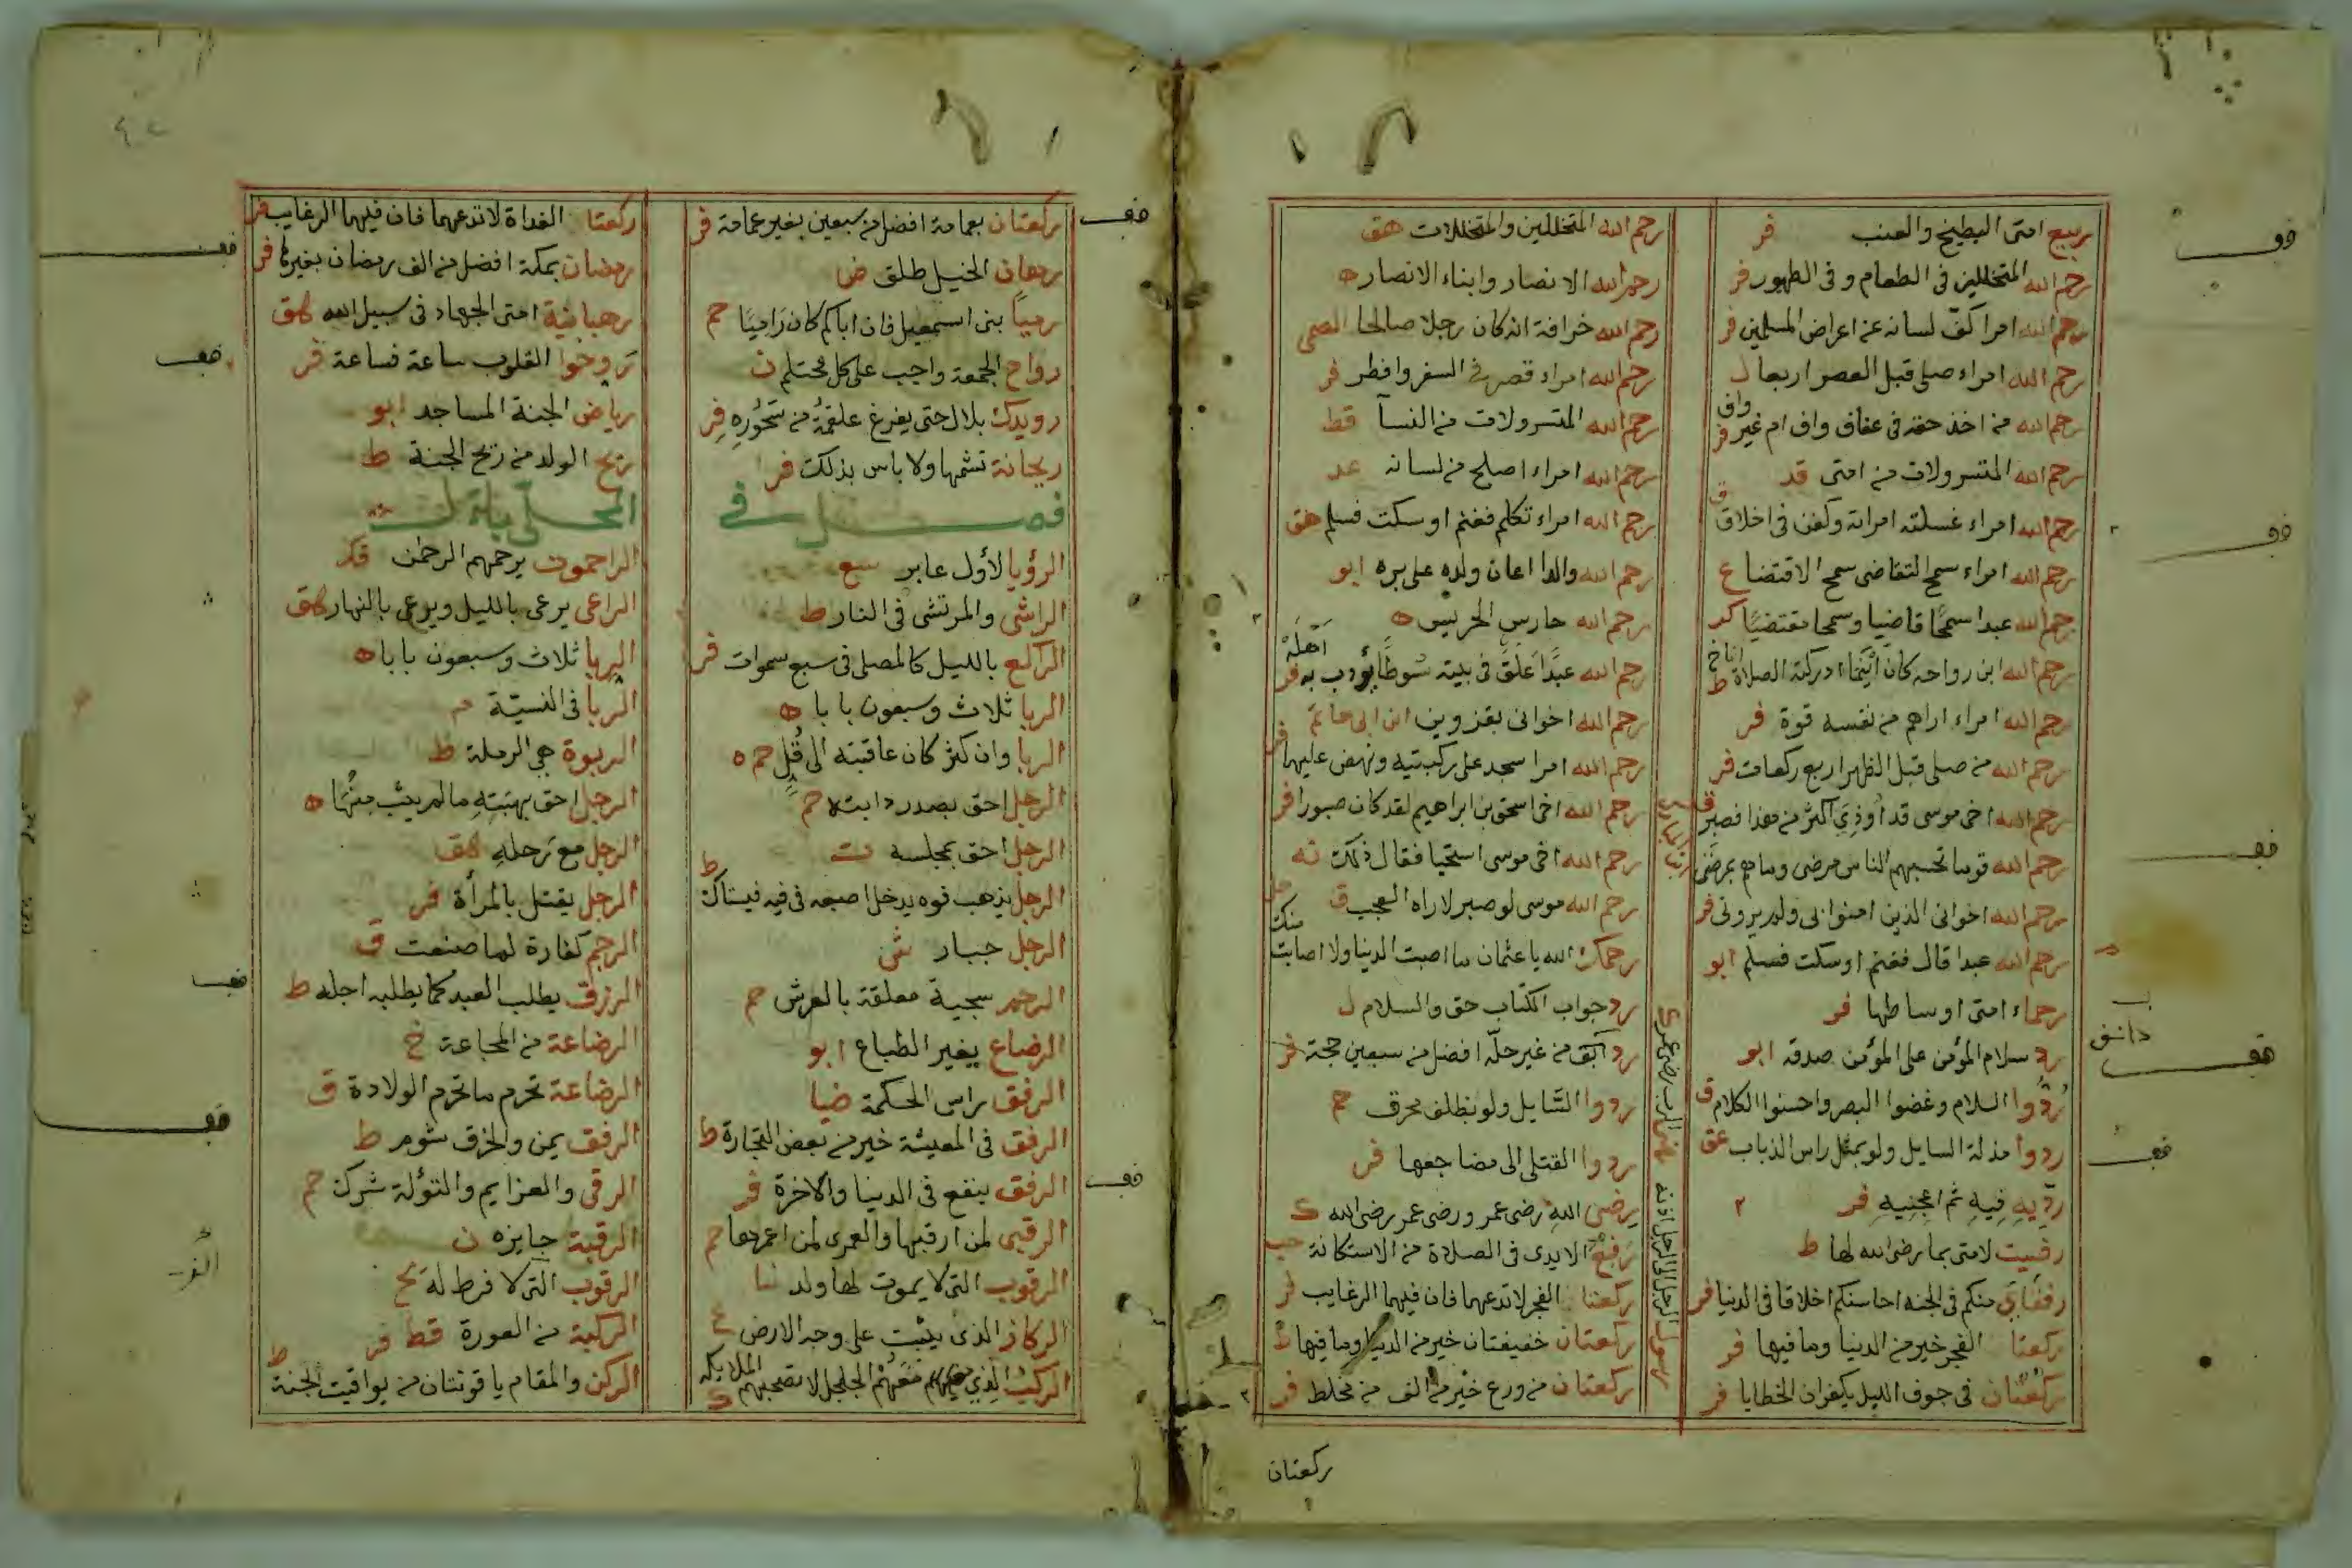 ربيع امتى البطيخ والعنب فر
رحم الله المتخللين فى الطعام وفى الطهور فر
رحم الله امرا كفّ لسانه عن اعراض المسلمين فر
رحم الله امراء صلى قبل العصر اربعا
رحم الله من اخذ حقه فى عفاف واف ام غير واف فر
رحم الله المتسرولات من امتى قد
رحم الله امراء غسلته امراته وكفن فى اخلاق ق
رحم الله امراء سمح التقاضى سمح الاقتضا ع
رحم الله عبدا سمحًا قاضيا وسمحا مقتضيًا كر
رحم الله ابن رواحه كان اينما ادركته الصلاة اناخ ط
رحم الله امراء اراهم من نفسه قوة فر
رحم الله من صلى قبل الظهر اربع ركعات فر
رحم الله اخى موسى قد اوذى اكثر من هذا فصبر ق
رحم الله قوما تحسبهم الناس مرضى وما هم بمرضى
رحم الله اخوانى الذين امنوا بى ولم يرونى فر
رحم الله عبدا قال فغنم او سكت فسلم ابو
رحماء امتى اوساطها فر
رد سلام المؤمن على المؤمن صدقه ابو
ردّوا السلام وغضوا البصر واحسنوا الكلام ق
ردوا مذلة السايل ولو بمثل راس الذباب عق
ردّيه فيه ثم اعجنيه فر
رضيت لامتى بما رضى الله لها ط
رفقاءى منكم فى الجنه احاسنكم اخلاقا فى الدنيا فر
ركعتا الفجر خير من الدنيا وما فيها فر
ركعتان فى جوف الليل يكفران الخطايا فر
رحم الله المتخللين والمتخللات هق
رحم الله الانصار وابناء الانصار ه
رحم الله خرافة انه كان رجلا صالحا
رحم الله امراء قصر فى السفر وافطر فر
رحم الله المتسرولات من النسآ قط
رحم الله امراء اصلح من لسانه عد
رحم الله امراء تكلم فغنم او سكت فسلم هق
رحم الله والدا اعان ولده على بره ابو
رحم الله حارس الحرس ه
رحم الله عبدًا علّق فى بيته سوطًا يؤدب به اهله فر
رحم الله اخوانى بقزوين ابن ابى حاتم
رحم الله امرا سجد على ركبتيه ونهض عليهما فر
رحم الله اخى اسحق بن ابراهيم لقد كان صبورا فر
رحم الله اخى موسى استحيا فقال ذلك
رحم الله موسى لو صبر لراه العجب ق
رحمك الله يا عثمان ما اصبت الدنيا ولا اصابت منك
رد جواب الكتاب حق والسلام ل
رد ابق من غير حلّه افضل من سبعين حجة فر
ردوا السّايل ولو بظلف محرق حم
ردوا القتلى الى مضاجعها فر
رضى الله رضى عمر ورضى عمر رضى الله ك
رفع الايدى فى الصلاة من الاستكانة
ركعتا الفجر لا تدعهما فان فيهما الرغايب
ركعتان خفيفتان خير من الدنيا وما فيها
ركعتان من ورع خير من الف من مخلط فر
ركعتان
ركعتان بعمامة افضل من سبعين بغير عمامة فر
رهان الخيل طلق ض
رميًا بنى اسمعيل فان اباكم كان راميًا حم
رواح الجمعة واجب على كل محتلم ن
رويدك بلال حتى يفرغ علقمة من سحوره فر
ريحانة تشمها ولا باس بذلك فر
فصل فى
الرؤيا لأول عابر
الراشى والمرتشى فى النار ط
الراكع بالليل كالمصلى فى سبع سموات فر
الربا ثلاث وسبعون بابا ه
الربا وان كثر كان عاقبته الى قُل حم ه
الرجل احق بصدر دابته حم
الرجل احق بمجلسه ت
الرجل يذهب فوه يدخل اصبعه فى فيه فيستاك ط
الرجل جبار
الرحم سجية معلقة بالعرش حم
الرضاع يغير الطباع ابو
الرفق راس الحكمة ضيا
الرفق فى المعيشة خير من بعض التجارة ط
الرفق ينفع فى الدنيا والاخرة فر
الرقبى لمن ارقبها والعمرى لمن اعمرها حم
الرقوب التى لا يموت لها ولد
الركاز الذى ينبت على وجه الارض
الركب الذى معهم الجلجل لا تصحبهم الملايكه
ركعتا الغداة لا تدعهما فان فيهما الرغايب فر
رمضان بمكة افضل من الف رمضان بغيرها فر
رهبانية امتى الجهاد فى سبيل الله هق
روحوا القلوب ساعة فساعة فر
رياض الجنة المساجد ابو
ريح الولد من ريح الجنة ط
المحلى بال
الراحمون يرحمهم الرحمن
الراعى يرعى بالليل ويرعى بالنهار هق
الربا ثلاث وسبعون بابا ه
الربا فى النسيّة م
الربوة هى الرملة ط
الرجل احق بهبته ما لم يثب منها ه
الرجل مع رحله هق
الرجل يقتل بالمرأة فر
الرجم كفارة لما صنعت ق
الرزق يطلب العبد كما يطلبه اجله ط
الرضاعة من المجاعة خ
الرضاعة تحرم ما تحرم الولادة ق
الرفق يمن والخرق شوم ط
الرقى والعزايم والتؤلة شرك حم
الرقبة جايزه ن
الرقوب التى لا فرط له
الركبة من العورة قط فر
الركن والمقام ياقوتتان من يواقيت الجنة ط